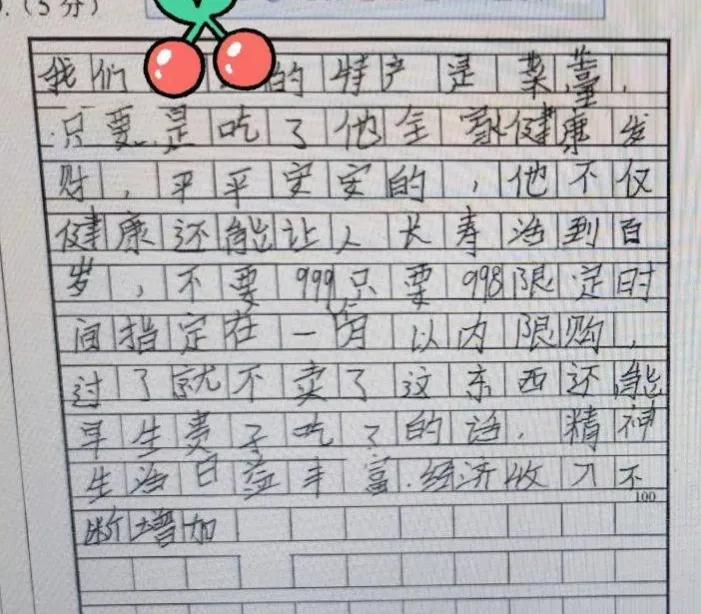 .（5分）
我们的特产是菜薹，
只要是吃了他全家健康发
财，平平安安的，他不仅
健康还能让人长寿活到百
岁，不要999只要998限定时
间指定在一个月以内限购，
过了就不卖了这东西还能
早生贵子吃了的话，精神
生活日益丰富.经济收入不
100
断增加